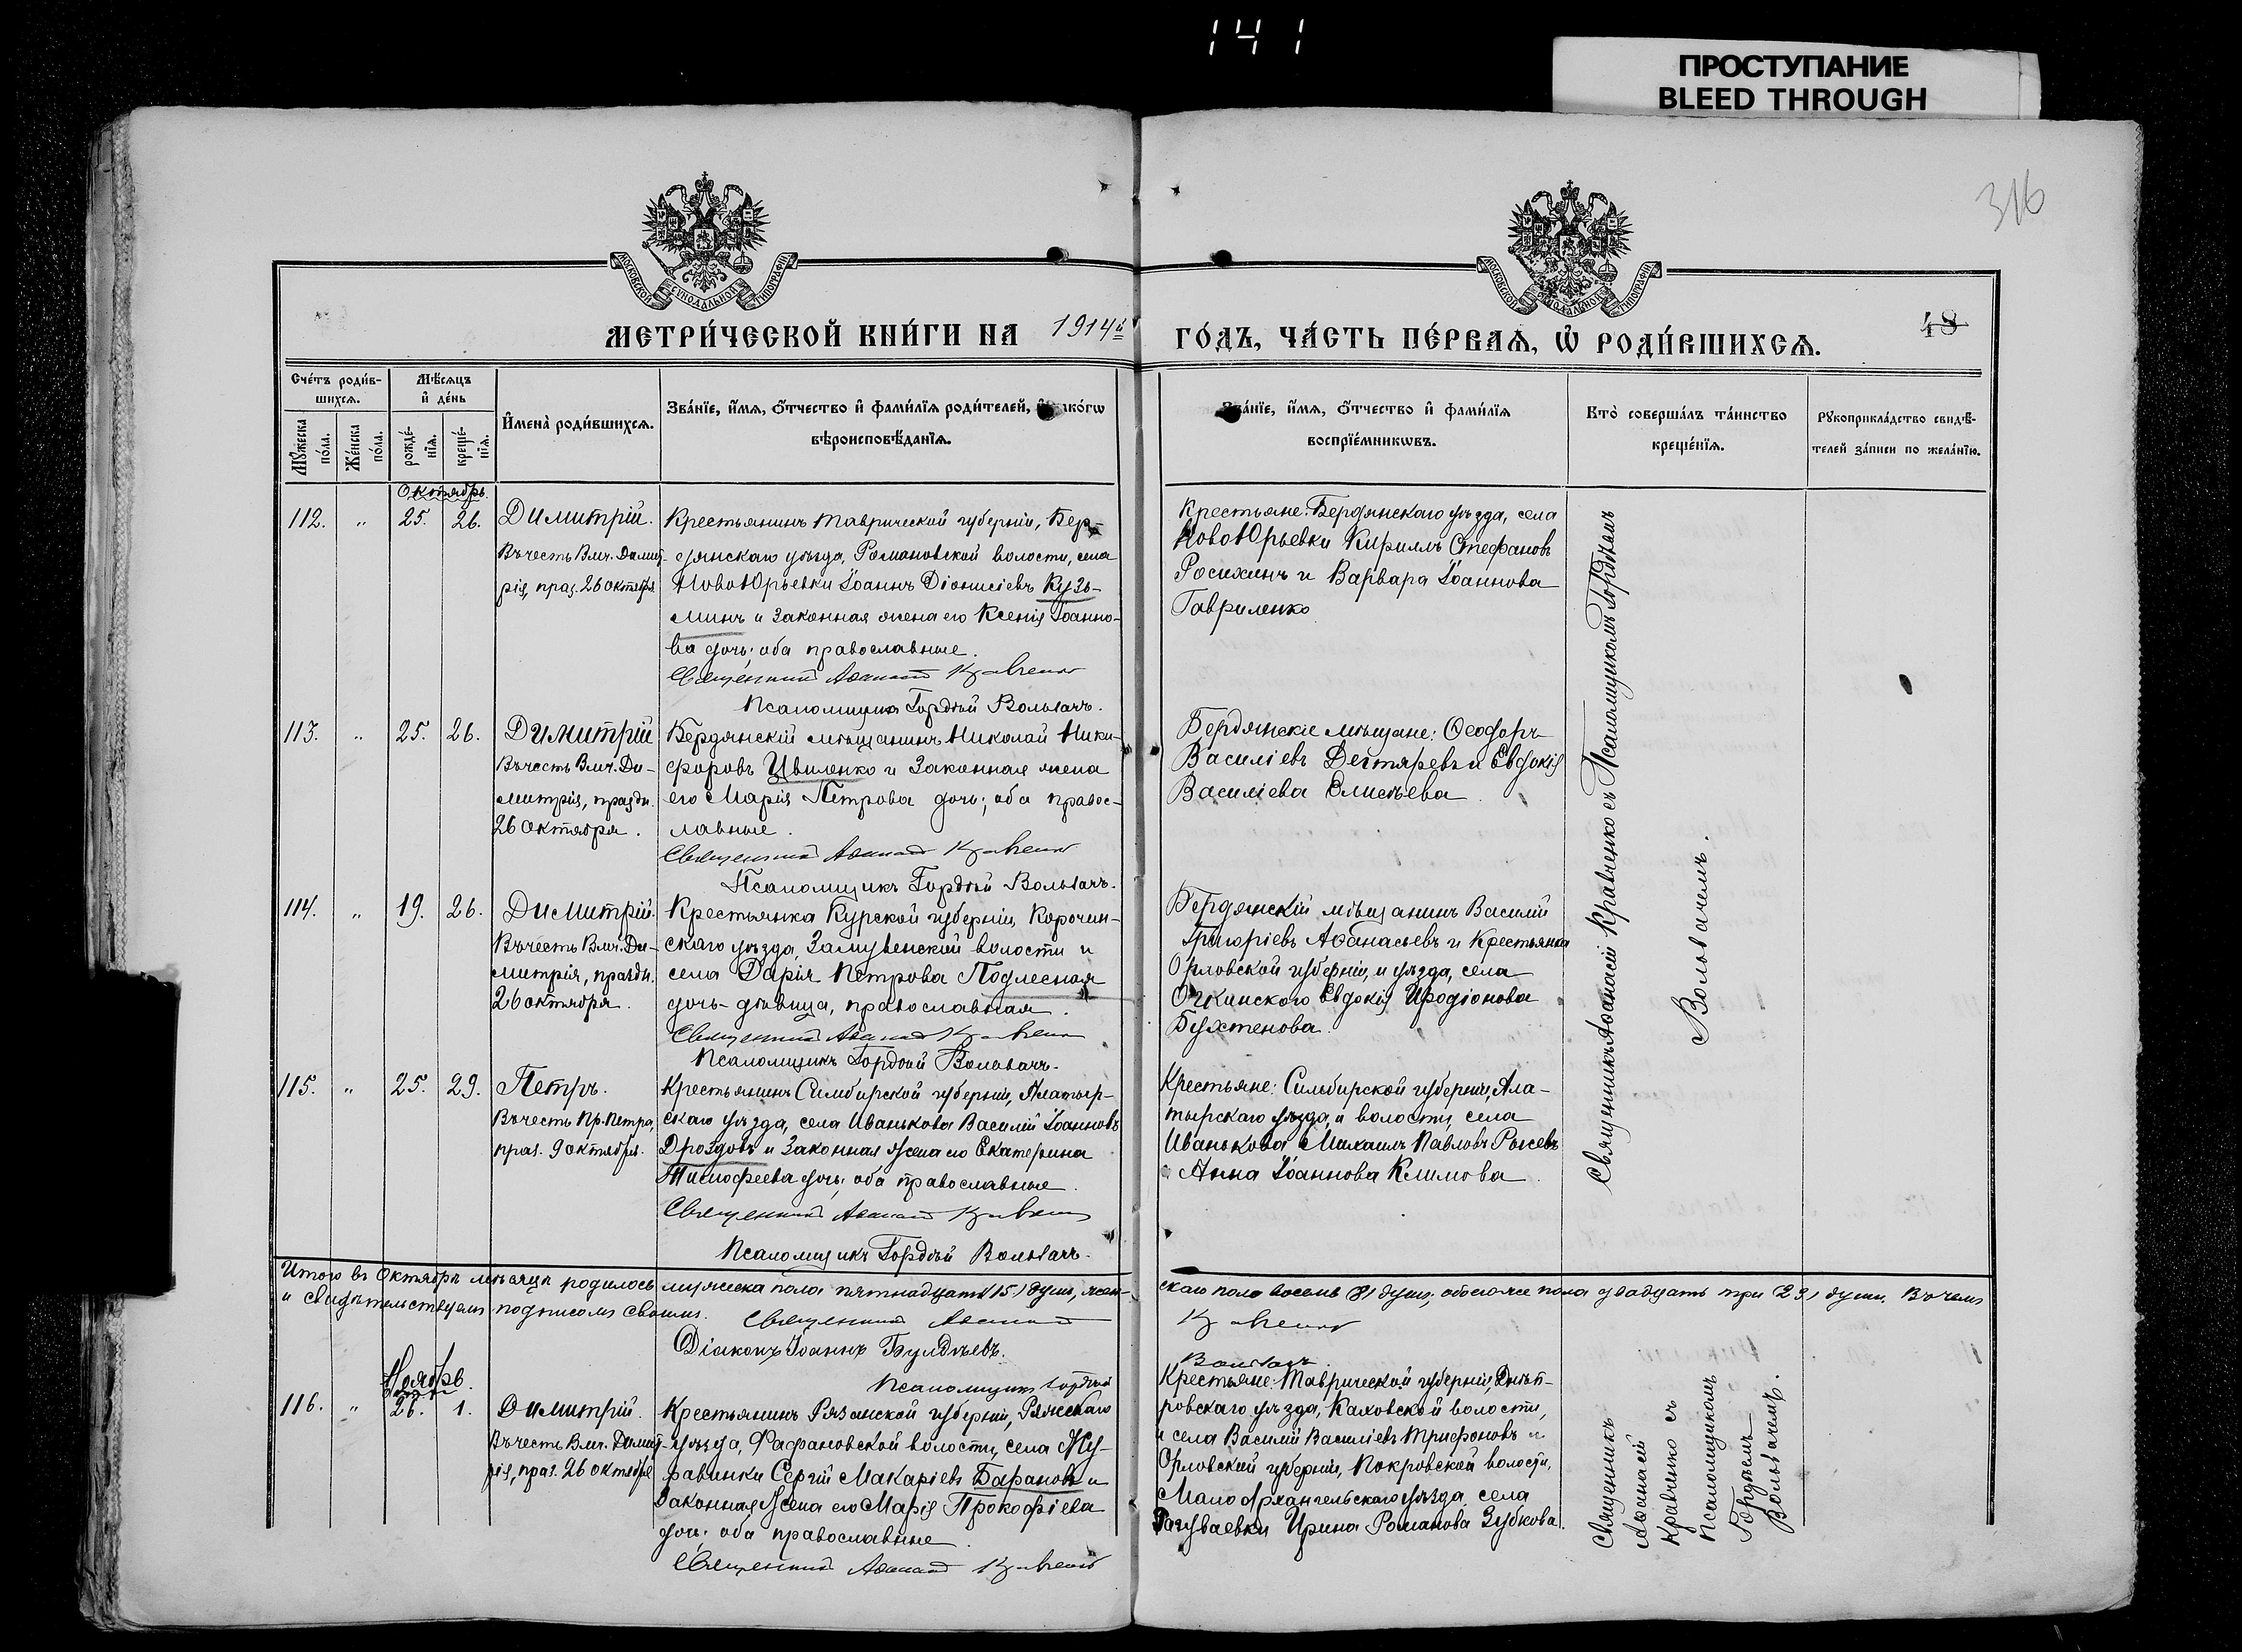 141
ПРОСТУПАНИЕ
BLEED THROUGH
316
МОСКОВСКОЙ СѴНОДАЛЬНОЙ ТИПОГРАФІИ
МОСКОВСКОЙ СѴНОДАЛЬНОЙ ТИПОГРАФІИ
МЕТРИ́ЧЕСКОЙ КНИ́ГИ НА 1914й ГО́ДЪ, ЧА́СТЬ ПЕ́РВАѦ, Ѡ҆ РОДИ́ВШИХСѦ.
48
Сче́тъ роди́в-
шихсѧ.
Мꙋ́жеска по́ла.
Же́нска по́ла.
Мѣ́сѧцъ
и҆ де́нь
рожде́-
нїѧ.
креще́-
нїѧ.
И҆мена̀ роди́вшихсѧ.
Зва́нїе, и҆́мѧ, ѻ҆́тчество и҆ фами́лїѧ роди́телей, и҆ како́гѡ
вѣроисповѣ́данїѧ.
Зва́нїе, и҆́мѧ, ѻ҆́тчество и҆ фами́лїѧ
воспрїе́мникѡвъ.
Кто̀ соверша́лъ та́инство
креще́нїѧ.
Рꙋкоприкла́дство свидѣ́-
телей за́писи по жела́нїю.
Октябрь.
112. " 25. 26.
Димитрій.
Въ честь Влч. Димит-
рія, праз. 26 октября
Крестьянинъ Таврической губерніи, Бер-
дянскаго уѣзда, Романовской волости, села
НовоЮрьевки Іоаннъ Діонисіевъ Кузь-
минъ и законная жена его Ксенія Іоанно-
ва дочь; оба православные.
Священникъ Аѳанасій Кравченко
Псаломщикъ Гордѣй Вольвачъ.
Крестьяне: Бердянскаго уѣзда, села
НовоЮрьевки Кириллъ Стефановъ
Росихинъ и Варвара Іоаннова
Гавриленко
113. " 25. 26.
Димитрій
Въ честь Влч. Ди-
митрія, праздн.
26 Октября.
Бердянскій мѣщанинъ Николай Ники-
форовъ Цвиленко и законная жена
его Марія Петрова дочь; оба правос-
лавные.
Священникъ Аѳанасій Кравченко
Псаломщикъ Гордѣй Вольвачъ.
Бердянскіе мѣщане: Ѳеодоръ
Василіевъ Дегтяревъ и Евдокія
Василіева Елисѣева.
114. " 19. 26.
Димитрій.
Въ честь Влч. Ди-
митрія, праздн.
26 октября.
Крестьянка Курской губерніи, Корочан-
скаго уѣзда, волости и
села Дарія Петрова Подлесная
дочь-дѣвица, православная.
Священникъ Аѳанасій Кравченко
Псаломщикъ Гордѣй Вольвачъ.
Бердянскій мѣщанинъ Василій
Григоріевъ Аѳанасьевъ и Крестьянка
Орловской губерніи, и уѣзда, села
Евдокія Иродіонова
Бухтенова.
115. " 25. 29.
Петръ.
Въ честь Пр. Петра,
праз. 9 октября.
Крестьянинъ Симбирской губерніи, Алатыр-
скаго уѣзда, села Иванькова Василій Іоанновъ
Дроздовъ и законная жена его Екатерина
Тимофеева дочь; оба православные.
Священникъ Аѳанасій Кравченко
Псаломщикъ Гордѣй Вольвачъ.
Крестьяне: Симбирской губерніи, Ала-
тырскаго уѣзда, и волости, села
Иванькова Михаилъ Павловъ Рысевъ
Анна Іоаннова Климова.
Священникъ Аѳанасій Кравченко съ Псаломщикомъ Гордѣемъ
Вольвачемъ.
Итого въ Октябрѣ мѣсяцѣ родилось мужеска пола пятнадцать (15) душъ, жен-скаго пола восемь (8) душъ; обоего же пола двадцать три (23) души. Въ чемъ
и свидѣтельствуемъ подписомъ своимъ. Священникъ Аѳанасій Кравченко
Діаконъ Іоаннъ Булдѣевъ.
Псаломщикъ Гордѣй Вольвачъ.
Ноябрь.
116. " 26. 1.
Димитрій.
Въ честь Влч. Димит-
рія, праз. 26 октября
Крестьянинъ Рязанской губерніи, Ряжскаго
уѣзда, волости, села Жу-
равинки Сергій Макаріевъ Барановъ и
законная жена его Марія Прокофіева
дочь; оба православные.
Священникъ Аѳанасій Кравченко
Крестьяне: Таврической губерніи, Днѣп-
ровскаго уѣзда, Каховской волости,
и села Василій Василіевъ Трифоновъ и
Орловской губерніи, Покровской волости,
Малоархангельскаго уѣзда, села
Ирина Романова Зубкова.
Священникъ
Аѳанасій
Кравченко съ
Псаломщикомъ
Гордѣемъ
Вольвачемъ.